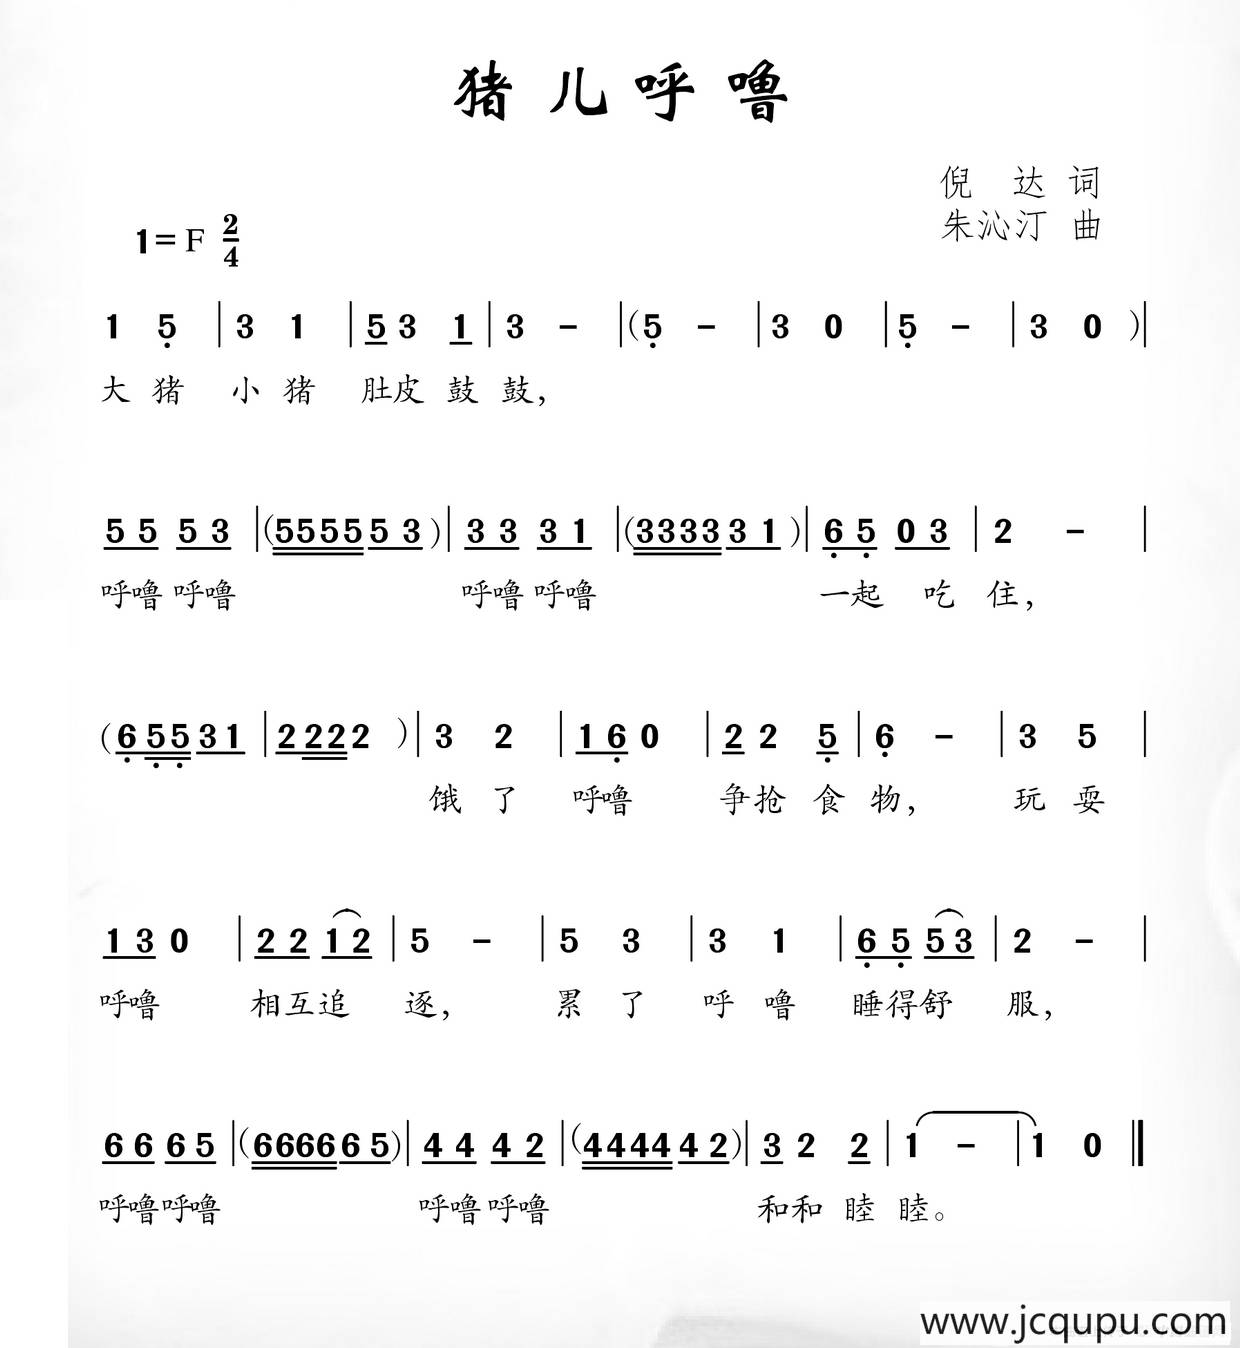 猪儿呼噜
倪 达 词
朱沁汀 曲
1=F 2/4
1 5 | 3 1 | 5 3 1 | 3 - | (5 - | 3 0 | 5 - | 3 0 )|
大 猪 小 猪 肚皮 鼓 鼓，
5 5 5 3 |(5 5 5 5 5 3 )| 3 3 3 1 |(3 3 3 3 3 1 )| 6 5 0 3 | 2 - |
呼噜 呼噜 呼噜 呼噜 一起 吃 住，
(6 5 5 3 1 | 2 2 2 2 )| 3 2 | 1 6 0 | 2 2 5 | 6 - | 3 5 |
饿 了 呼噜 争抢 食 物， 玩 耍
1 3 0 | 2 2 1 2 | 5 - | 5 3 | 3 1 | 6 5 5 3 | 2 - |
呼噜 相互追 逐， 累 了 呼 噜 睡得舒 服，
6 6 6 5 |(6 6 6 6 6 5 )| 4 4 4 2 |(4 4 4 4 4 2 )| 3 2 2 | 1 - | 1 0 ‖
呼噜 呼噜 呼噜 呼噜 和和 睦 睦。
www.jcqupu.com